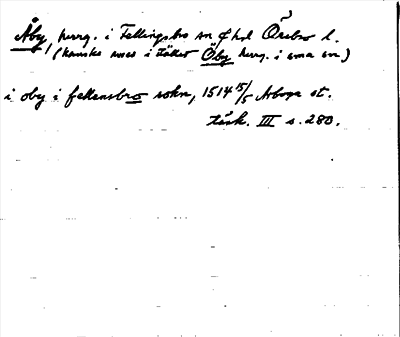 Åby, herrg. i Fellingsbro sn o hd Örebro l.
(kanske avses i stället Öby herrg. i sma sn)
i oby i fellensbro sokn, 1514 15/5 Arboga st.
tänk. III s. 280.